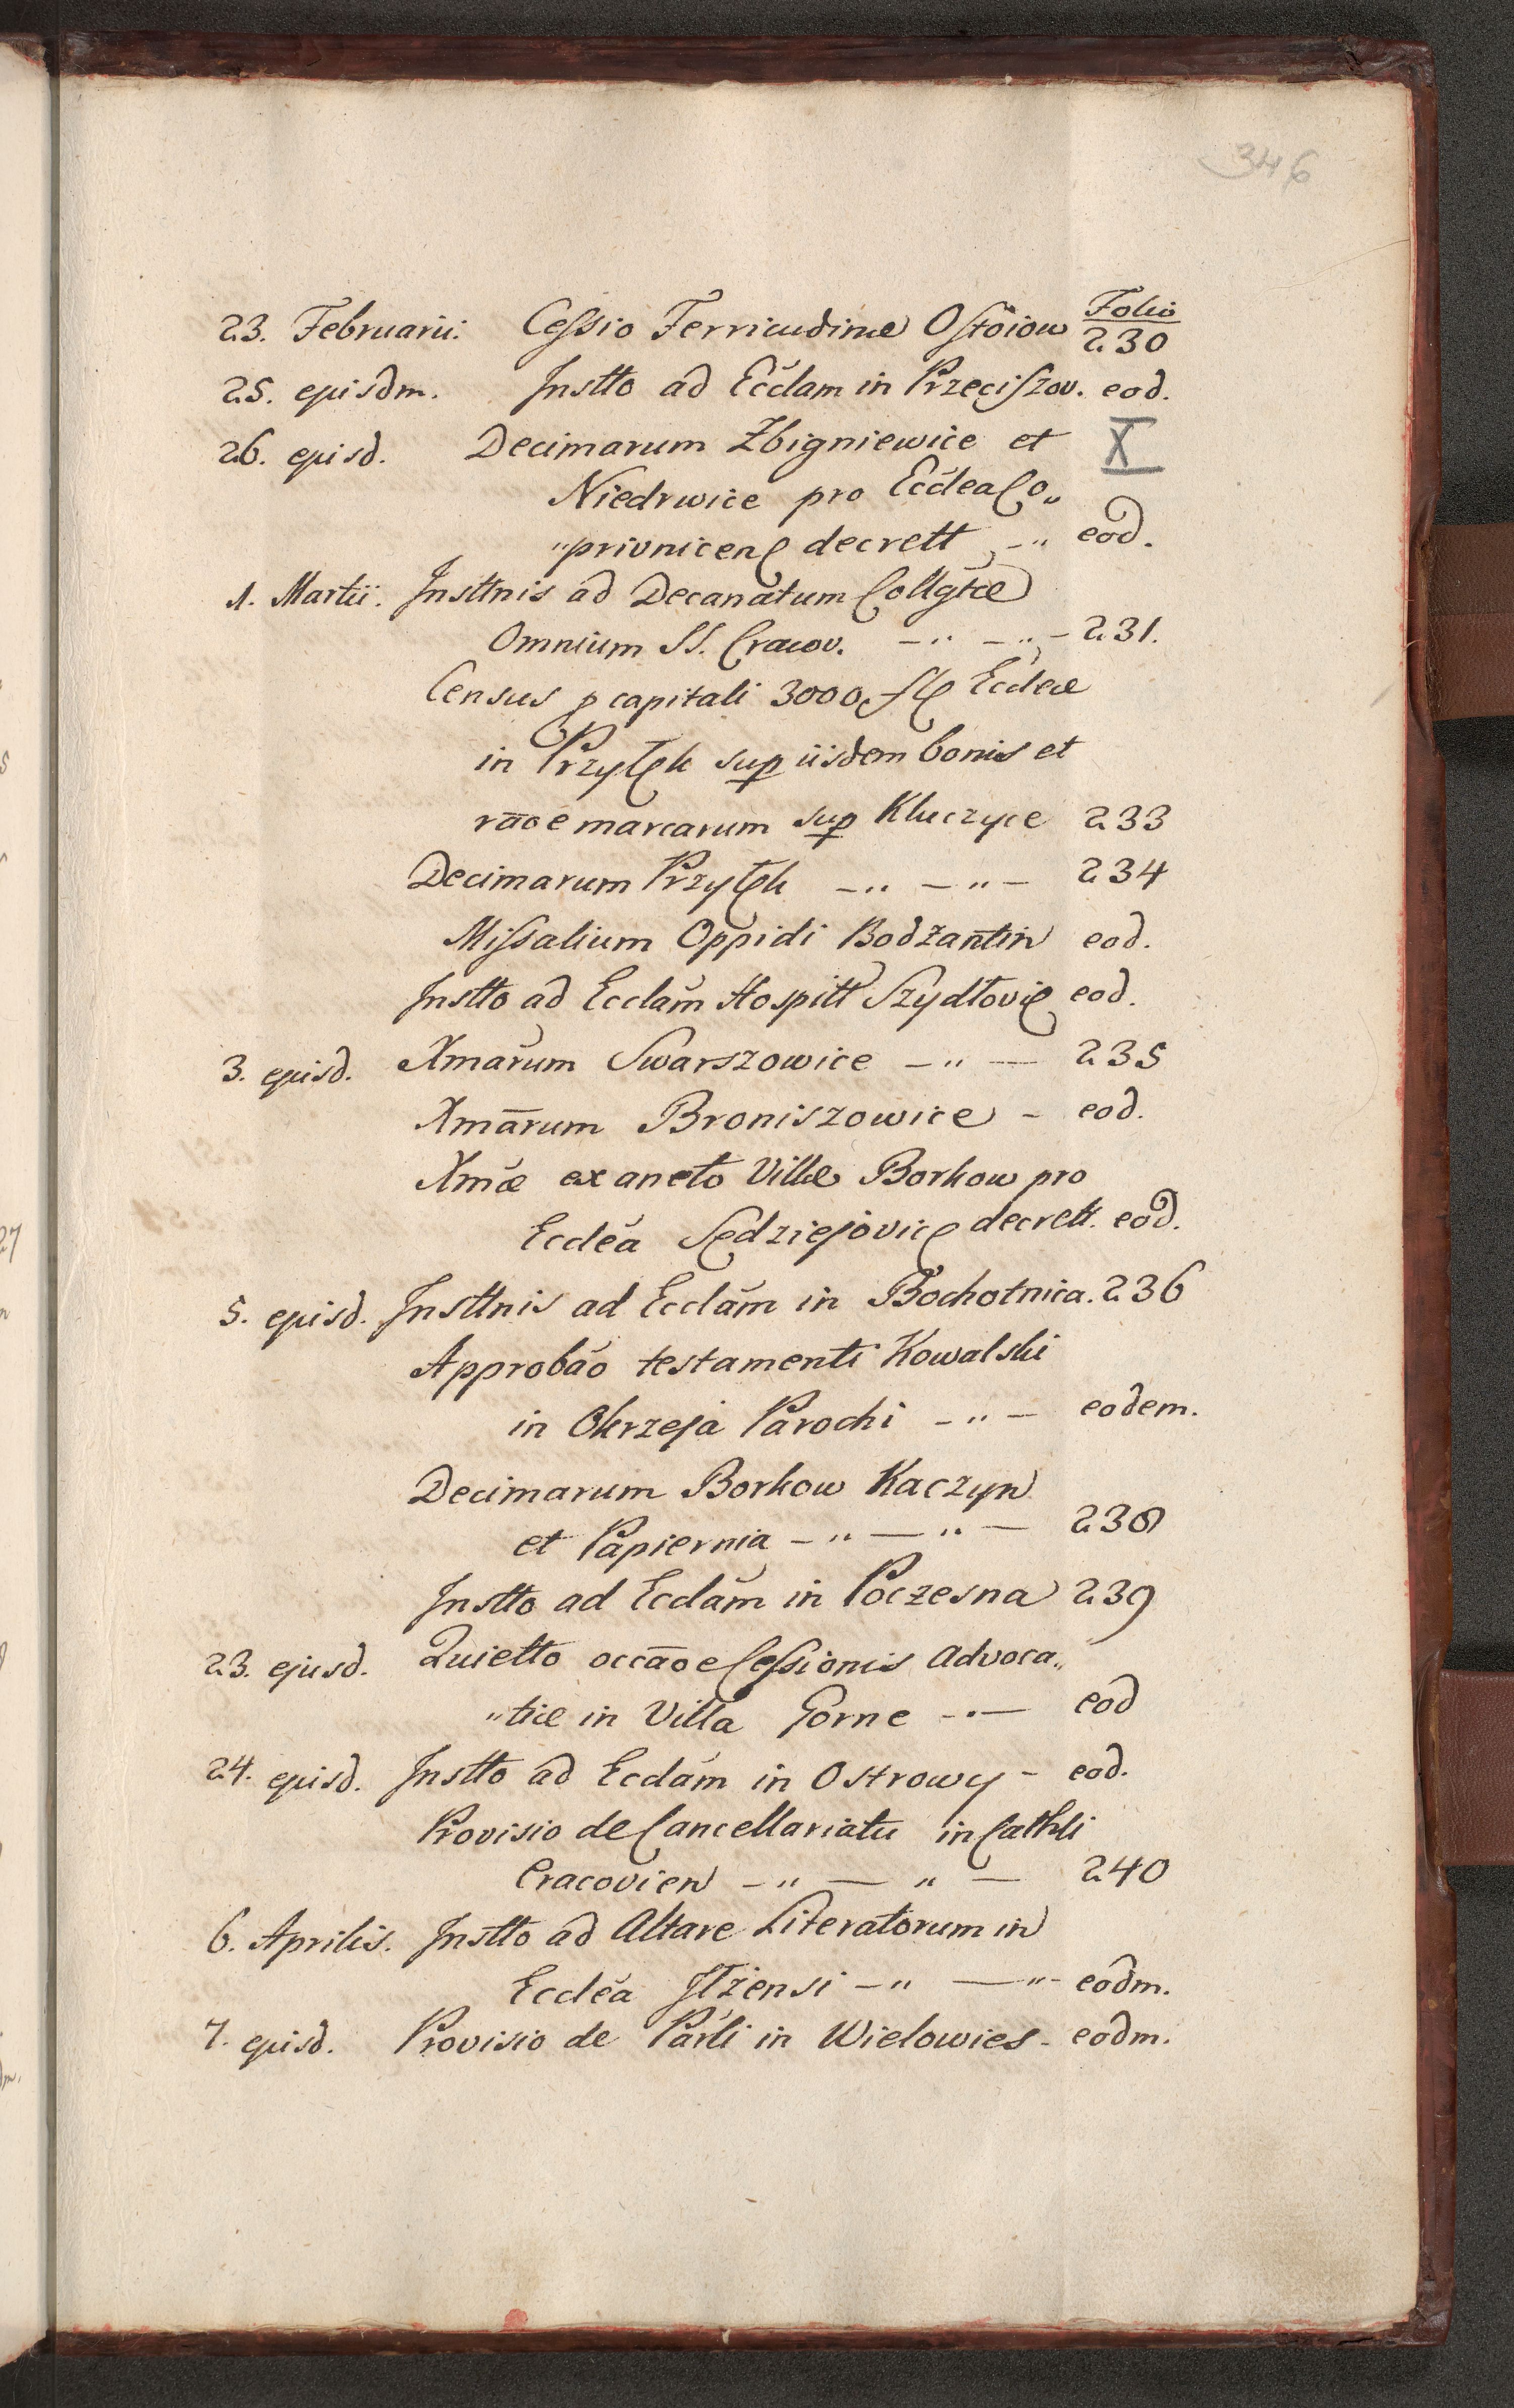 346
Folio
23. Februarii. Cessio Ferricudinæ Ostoiow 230
25. ejusdm. Instto ad Ecclam in Przeciszov. eod.
26. ejusd. Decimarum Zbigniewice et X
Niedrwice pro Ecclea Co„
„privnicen decrett -„ eod.
1. Martii. Insttnis ad Decanatum Collgtæ
Omnium SS. Cracov. -„ -„- 231.
Census p capitali 3000 fl Eccleæ
in Przytyk sup iisdem bonis et
rāoe marcarum sup Kluczyce 233
Decimarum Przytyk -„ -„- 234
Missalium Oppidi Bodzantin eod.
Instto ad Ecclam Hospitt Szydłovic eod.
3. ejusd. Xmarum Swarszowice -„- 235
Xmārum Broniszowice - eod.
Xmæ ex aneto Villæ Borkow pro
Ecclea Sędziejovic decrett. eod.
5. ejusd. Insttnis ad Ecclam in Bochotnica. 236
Approbāo testamenti Kowalski
in Okrzeja Parochi -„- eodem.
Decimarum Borkow Kaczyn
et Papiernia -„-„- 238
Instto ad Ecclam in Poczesna 239
23. ejusd. Quietto occāoe Cessionis Advoca„
„tiæ in Villa Gorne -.- eod
24. ejusd. Instto ad Ecclam in Ostrowy - eod.
Provisio de Cancellariatu in Cathli
Cracovien -„-„- 240
6. Aprilis. Instto ad Altare Literatorum in
Ecclea Iłzensi -„ -„- eodm.
7. ejusd. Provisio de Parli in Wielowies - eodm.